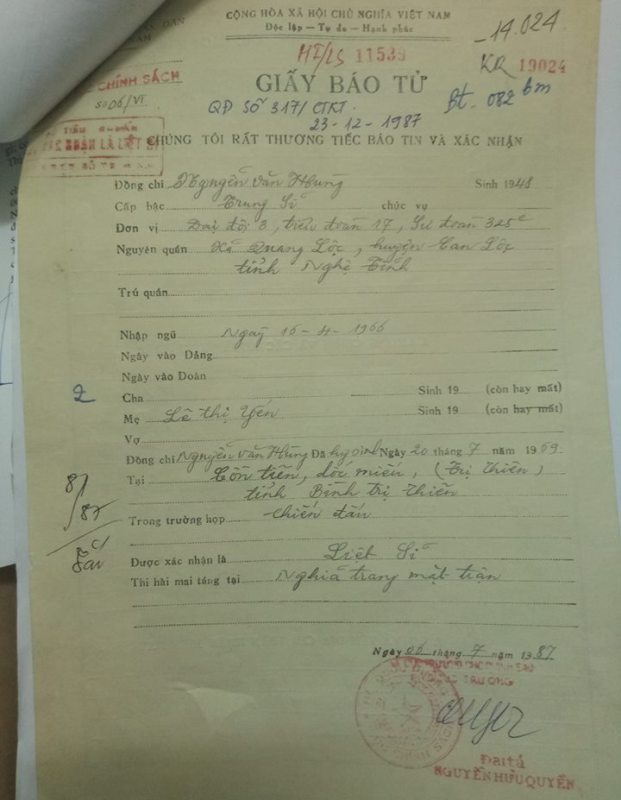 CỘNG HÒA XÃ HỘI CHỦ NGHĨA VIỆT NAM
Độc lập - Tự do - Hạnh phúc
14.024
HI/LS 11539
KR 19024
CHÍNH SÁCH
Số 06/VI
GIẤY BÁO TỬ
Bt. 082 bm
QĐ SỐ 317/CTKT.
23-12-1987
CHÚNG TÔI RẤT THƯƠNG TIẾC BÁO TIN VÀ XÁC NHẬN
Đồng chí Nguyễn Văn Hùng Sinh 1948
Cấp bậc Trung Sĩ chức vụ
Đơn vị Đại đội 3, tiểu đoàn 17, Sư đoàn 325c
Nguyên quán Xã Quang Lộc, huyện Can Lộc
tỉnh Nghệ Tĩnh
Trú quán
Nhập ngũ Ngày 16-4-1966
Ngày vào Đảng
Ngày vào Đoàn
2
Cha Sinh 19 (còn hay mất)
Mẹ Lê Thị Yến Sinh 19 (còn hay mất)
Vợ
Đồng chí Nguyễn Văn Hùng Đã hy sinh Ngày 20 tháng 7 năm 1969
Tại Cồn tiên, dốc miếu, (Trị Thiên)
tỉnh Bình Trị Thiên
81/87
Trong trường hợp chiến đấu
Được xác nhận là Liệt Sĩ
Thi hài mai táng tại Nghĩa trang mặt trận
Ngày 06 tháng 7 năm 1987
Đại tá
NGUYỄN HỮU QUYỀN